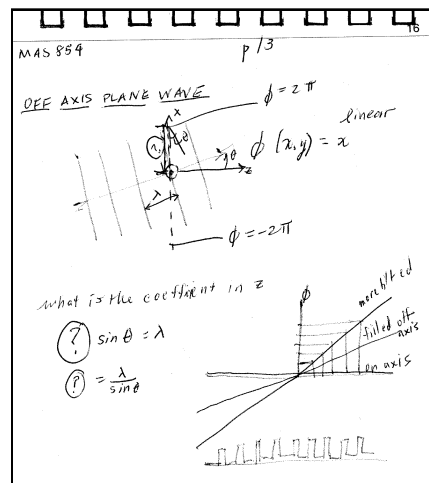 16
MAS 854
p 13
OFF AXIS PLANE WAVE
ϕ = 2π
x
linear
θ
(?)
θ
ϕ (x,y) = x
z
λ
ϕ = -2π
what is the coefficient in z
(?) sin θ = λ
(?) = λ / sin θ
ϕ
more tilted
tilted off axis
on axis